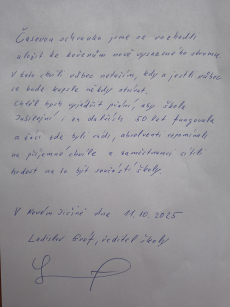 Časovou schránku jsme se rozhodli
uložit ke kořenům nově vysazeného stromu.
V tuto chvíli vůbec netuším, kdy a jestli vůbec
se bude kapsle někdy otvírat.
Chtěl bych vyjádřit přání, aby škola
i za dalších 50 let fungovala
a žáci zde byli rádi, absolventi vzpomínali
na příjemné chvíle a zaměstnanci cítili
hrdost na to být součástí školy.
V Novém Jičíně dne 11.10.2025
Ladislav Gróf, ředitel školy